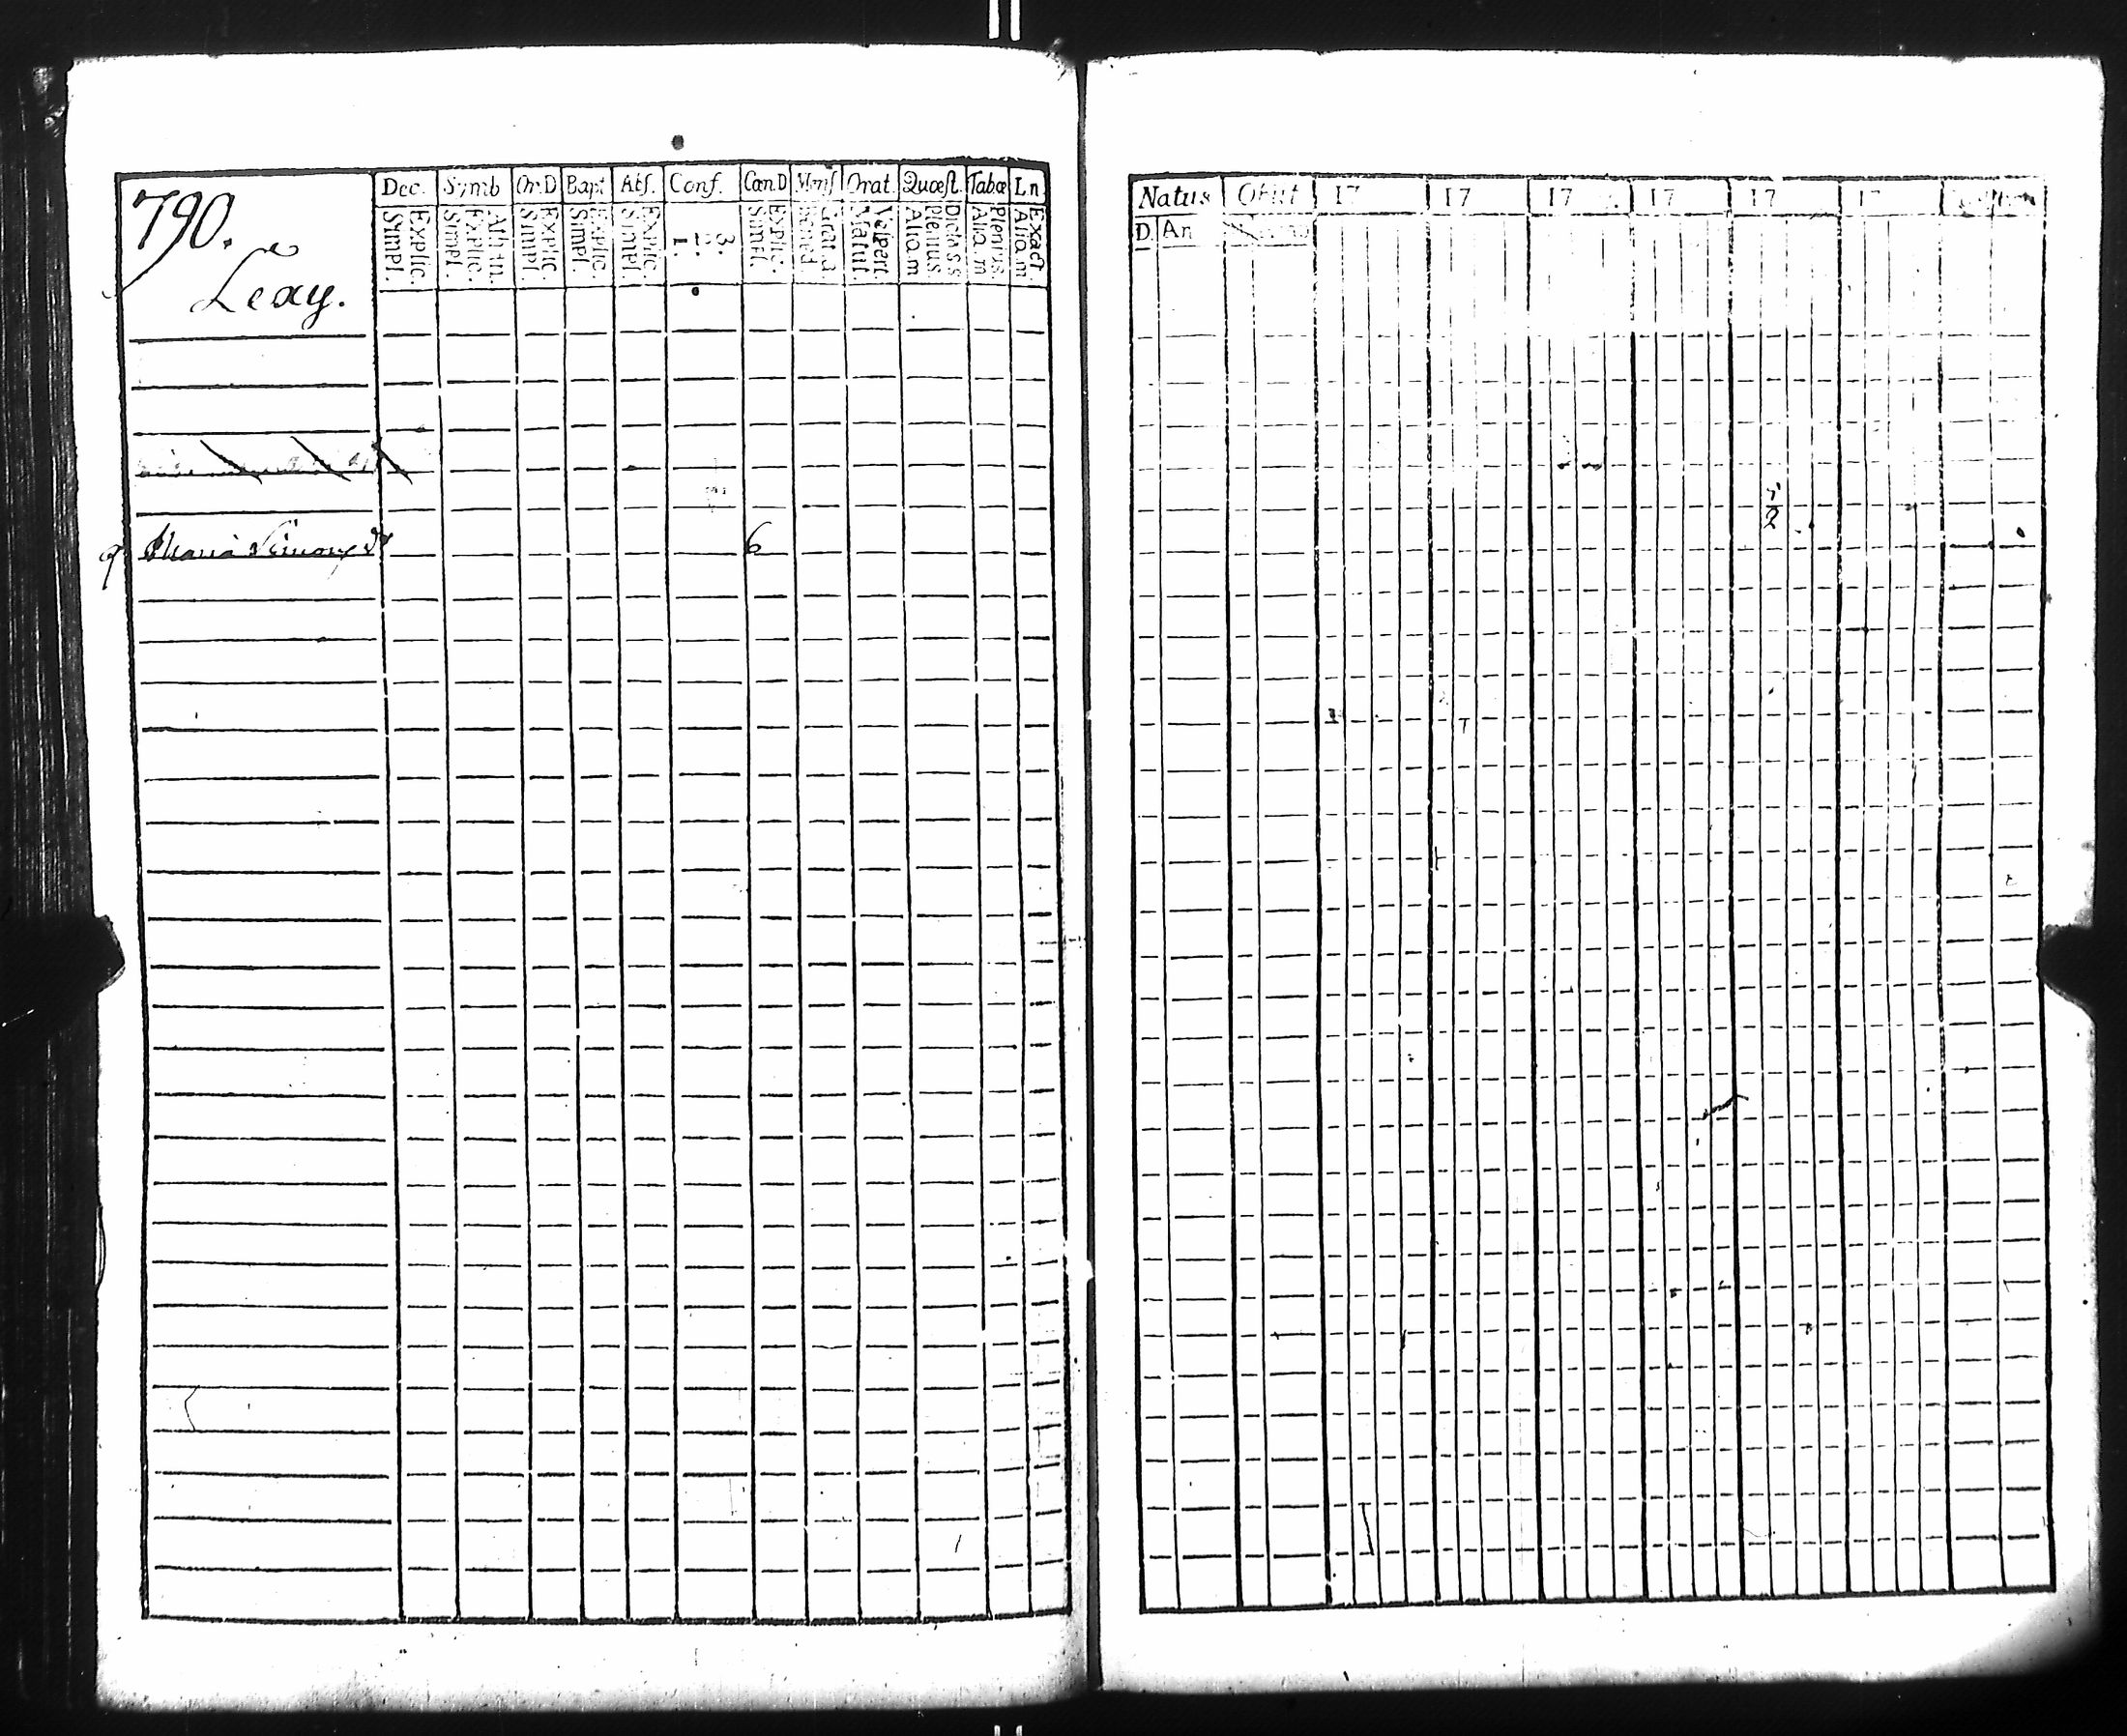 790.
Leay.
Dec. Symb Or.D Bapt Abs. Conf. Cœn.D Mens Orat. Quœst. Tabœ Ln
Simpl. Explic. Simpl. Explic. Athan. Simpl. Explic. Simpl. Explic. Simpl. Explic. 1. 2. 3. Simpl. Explic. Bened. Grat.a Matut. Vespert. Alio.m Plenius. Dicta s.s. Alio.m Plenius. Alio.m. Exact
Maria Simons Dr 6
Natus Obiit 17 17 17 17 17 17
D An